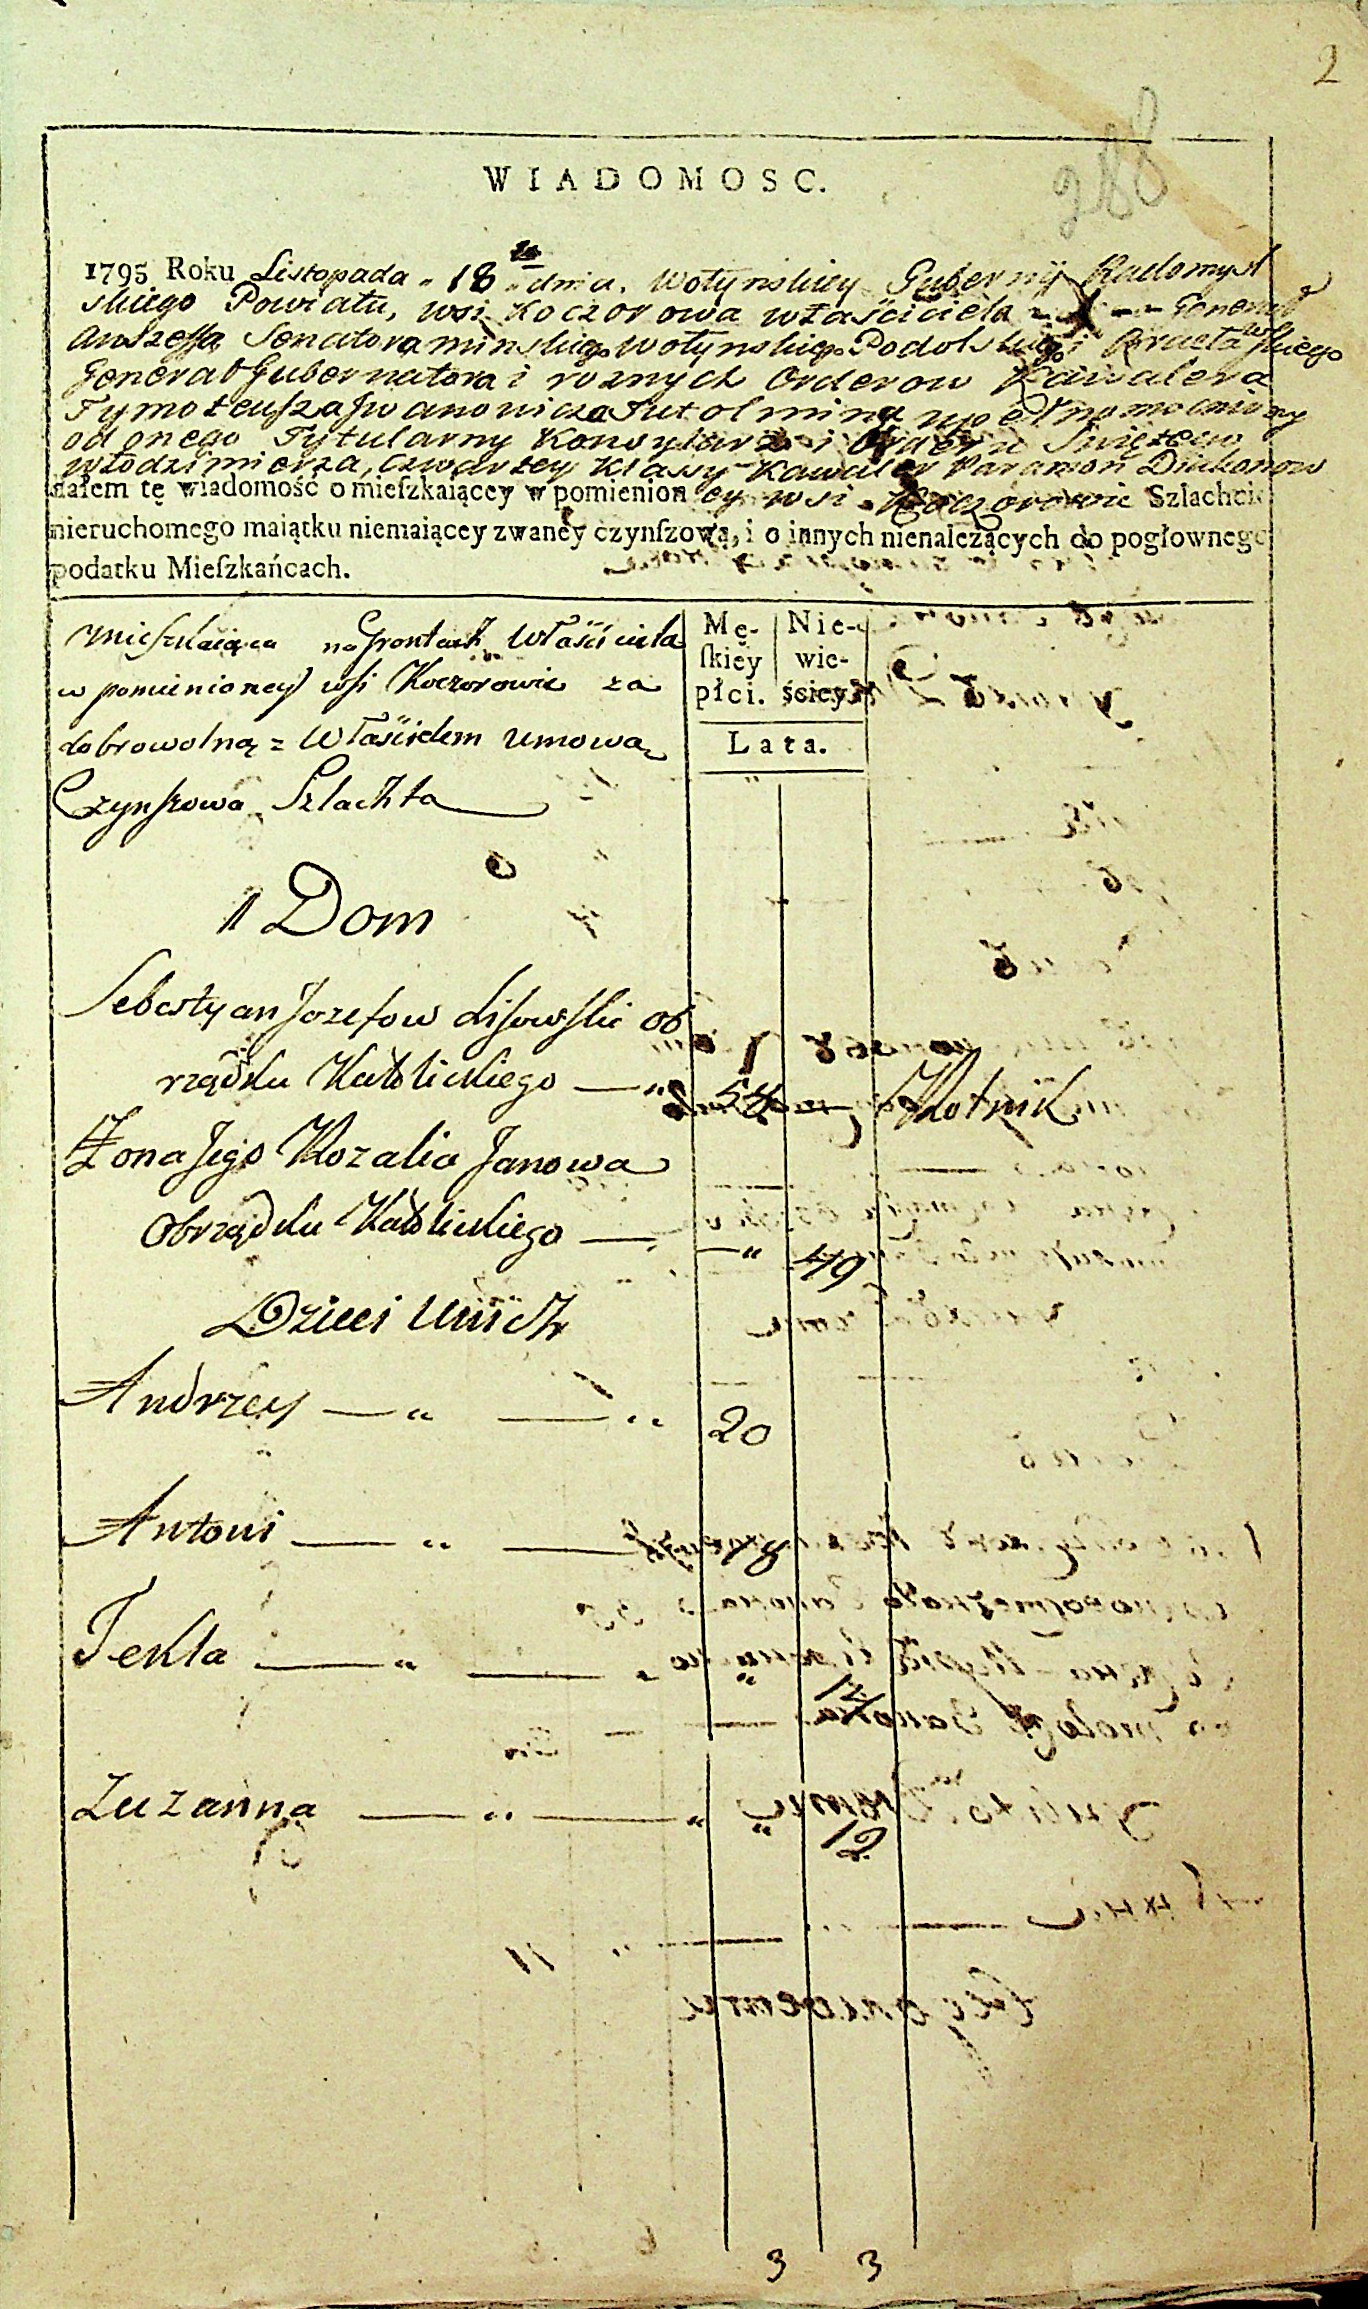 2
288
WIADOMOSC.
1795 Roku Listopada „ 18 „ dnia. Wołynskiey Gubernij Radomysl
skiego Powiatu, wsi Koczorowa właściciela General
Anszeffa Senatora minskiego Wołynskiego Podolskiego i Bracławskiego
General Gubernatora i roznych Orderow Kawalera
Tymoteusza Jwanowicza Tutolmina upełnomocniony
od onego Tytularny Konsyliarz i Orderu Swiętego
Włodzimierza, Czwartey Klassy Kawaler Paramon Diakonow
dałem tę wiadomość o mieſzkaiącey w pomienion ey wsi Koczorowie Szlachcie
nieruchomego maiątku niemaiącey zwaney czynſzową, i o innych nienależących do pogłownego
podatku Mieſzkańcach.
Mieszkaiąca na Gruntach Właściciela
w pomienioney wsi Koczorowie za
dobrowolną z Właścicielem umową
Czynszowa Szlachta
Mę-
ſkiey
płci.
Nie-
wie-
ściey
Lata.
1 Dom
Sebastyan Jozefow Lisowski ob
rządku Katolickiego — „ 54
Żona Jego Rozalia Janowa
Obrządku Katolickiego — — „ 49
Dzieci Unich
Andrzey — „ — „ 20
Antoni — „ —
Tekla — „ — „ „ 12
Zuzanna — „ — „ „ 12
3 3